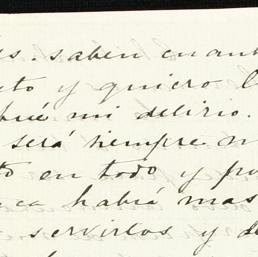 ds. saben cuant
to y quiero
mi delirio.
será siempre
to en todo y po
ca habiá mas
servirlos y de